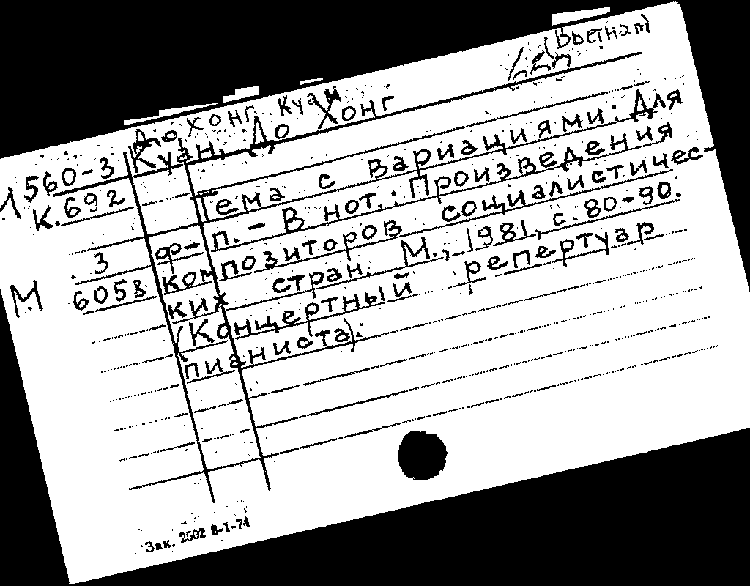 (Вьетнам)
До, Хонг Куан
М 560-3 Куан, До Хонг
К.692 Тема с вариациями: Для
3 ф-п. – В нот.: Произведения
М 6058 композиторов социалистичес-
ких стран. М., 1981, с. 80-90.
(Концертный репертуар
пианиста).
Зак. 2502 8-I-74